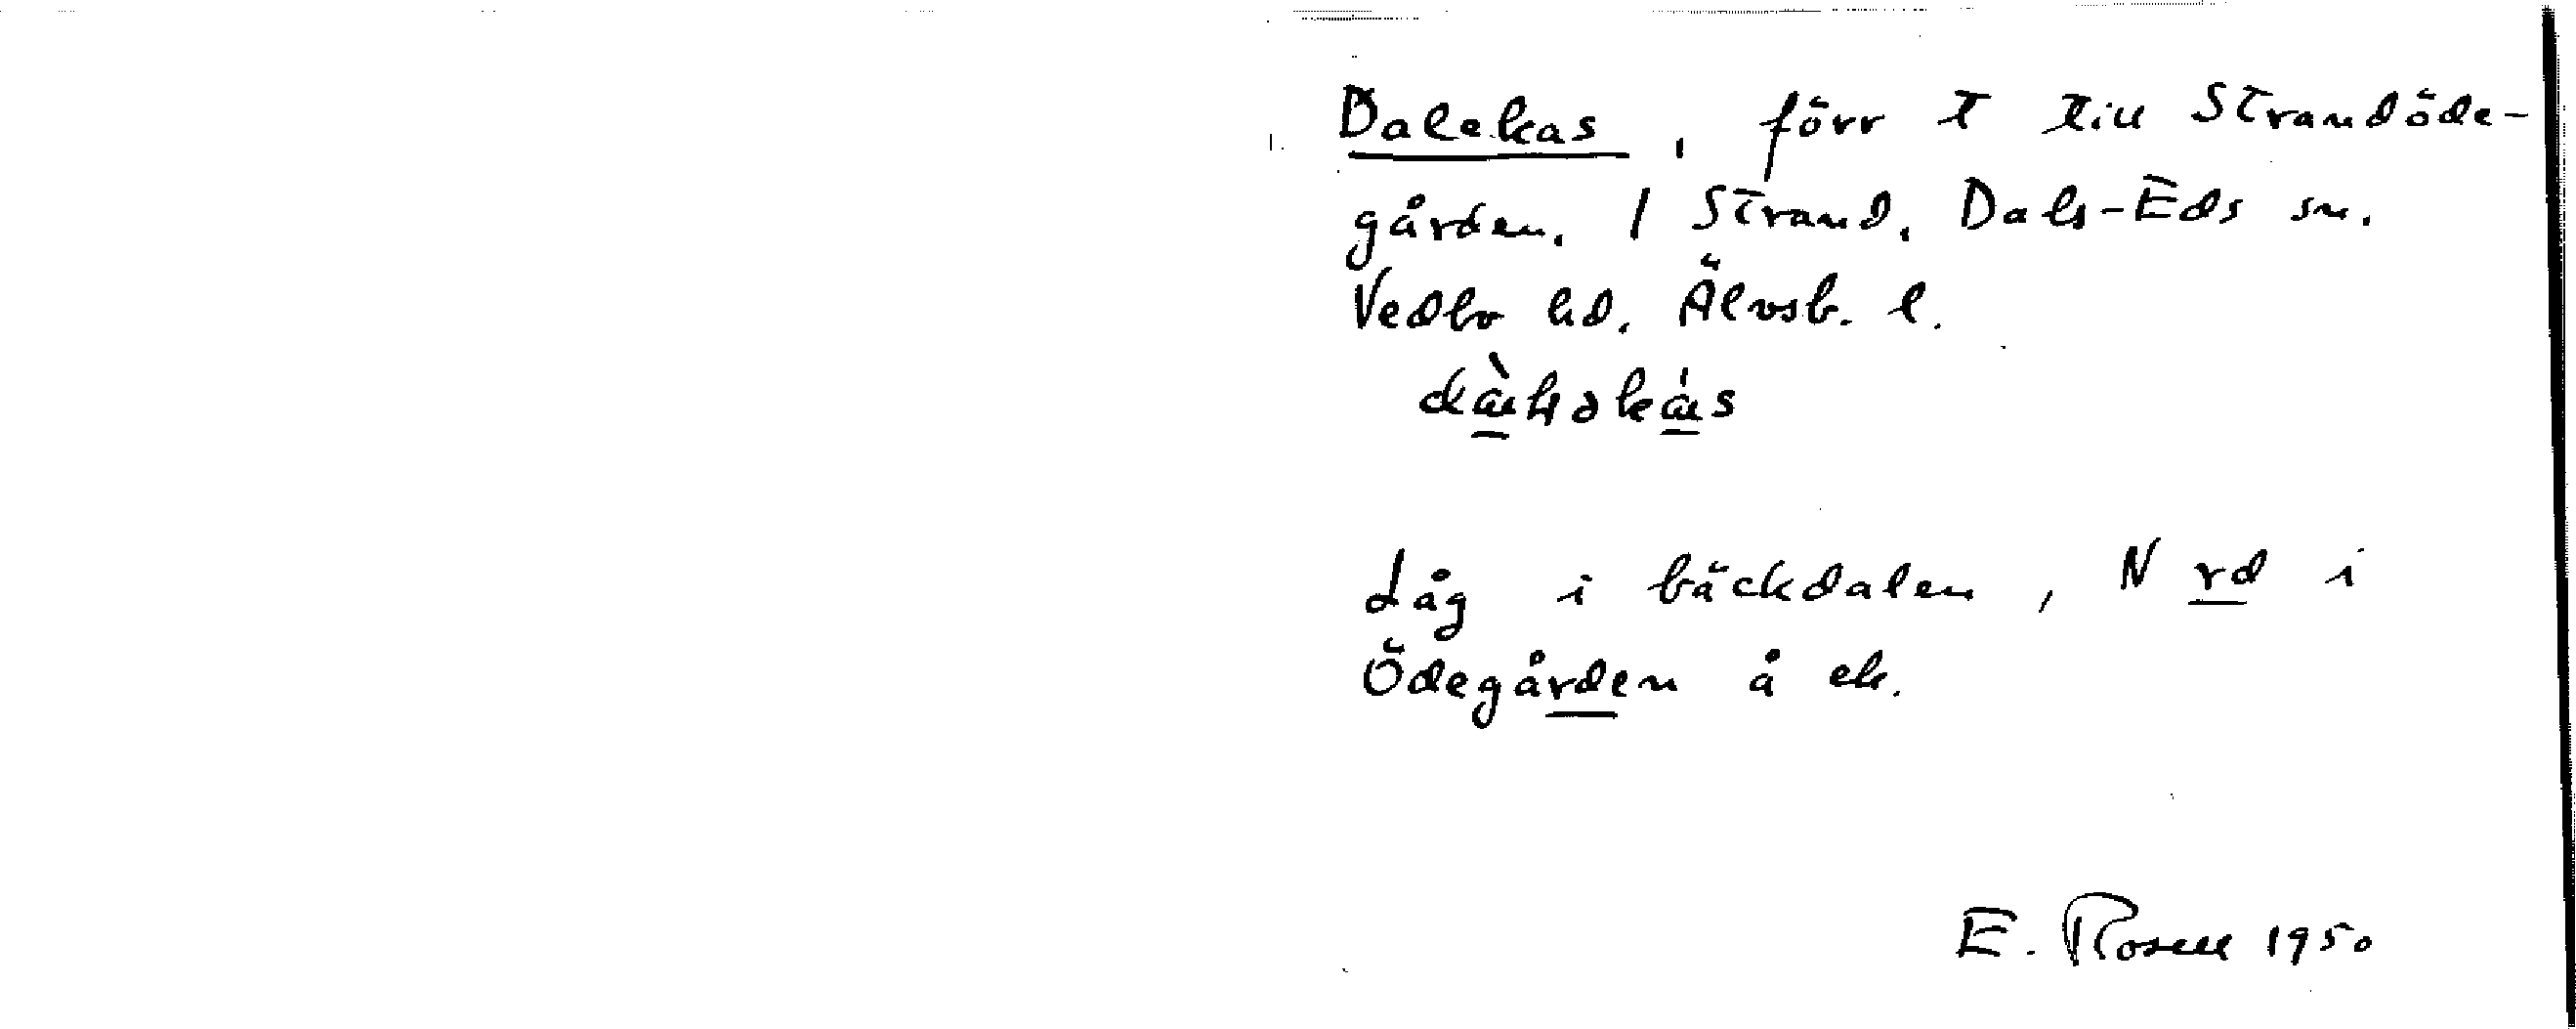 Dalekas, förr t till Strandöde-
gården, 1 Strand, Dals-Eds sn.
Vedbo hd. Älvsb. l.
Låg i bäckdalen, N rd i
Ödegården å ek.
E. Rosell 1950